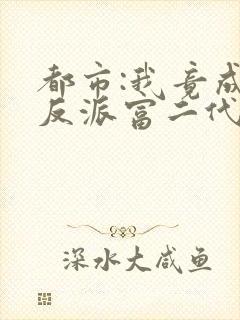 都市:我竟成
反派富二代
深水大咸鱼